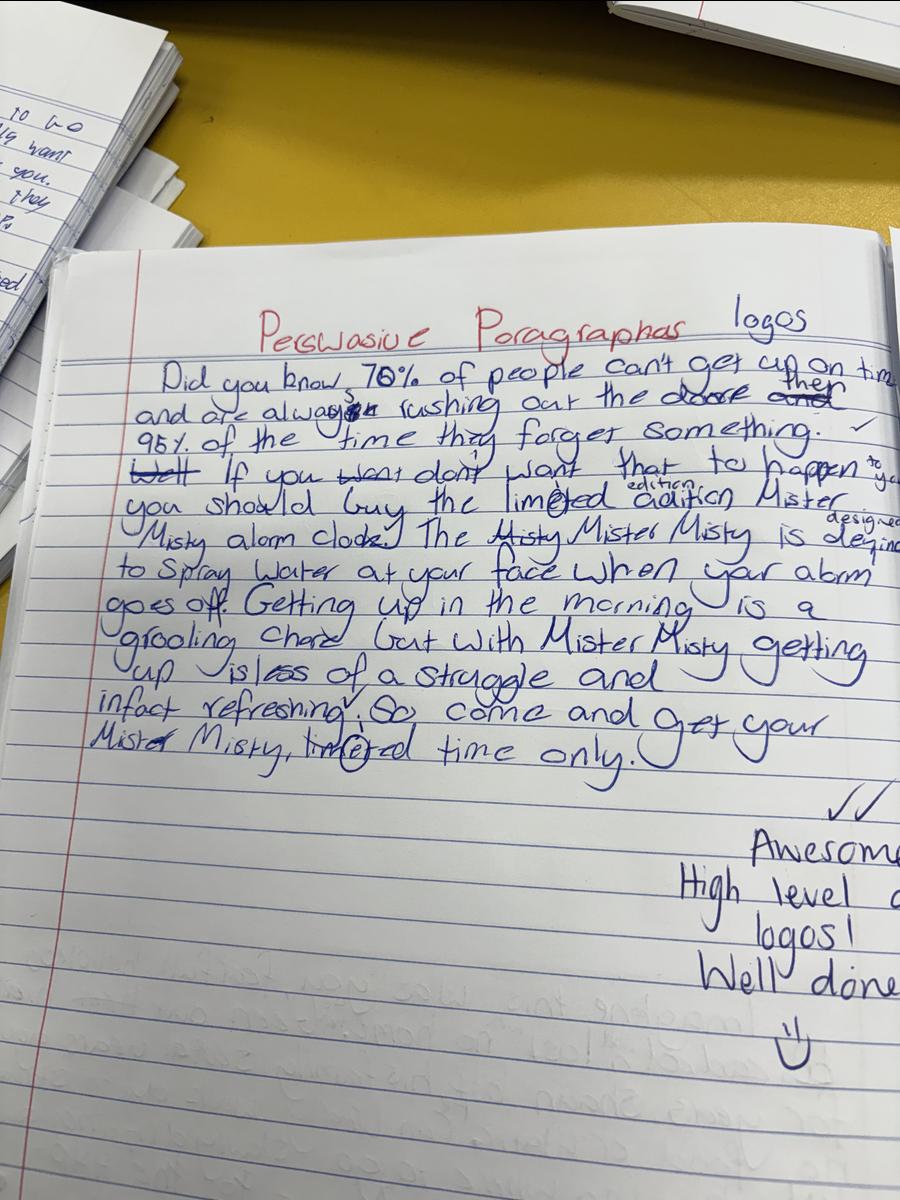 to Go
want
you.
they
Perswasive Poragraphas logos
Did you know, 70% of people can't get up on tim
and are always rushing out the doore and then
95% of the time they forget something. ✓
Well If you want don't want that to happen to yo
you should buy the limeted adition edition Mister
Misty alorm clock. The Misty Mister Misty is degind designed
to spray water at your face when your alorm
goes off. Getting up in the morning is a
grooling chore but with Mister Misty getting
up is less of a struggle and
infact refreshing. So come and get your
Mister Misty, limeted time only.
✓✓
Awesome
High level o
logos!
Well done